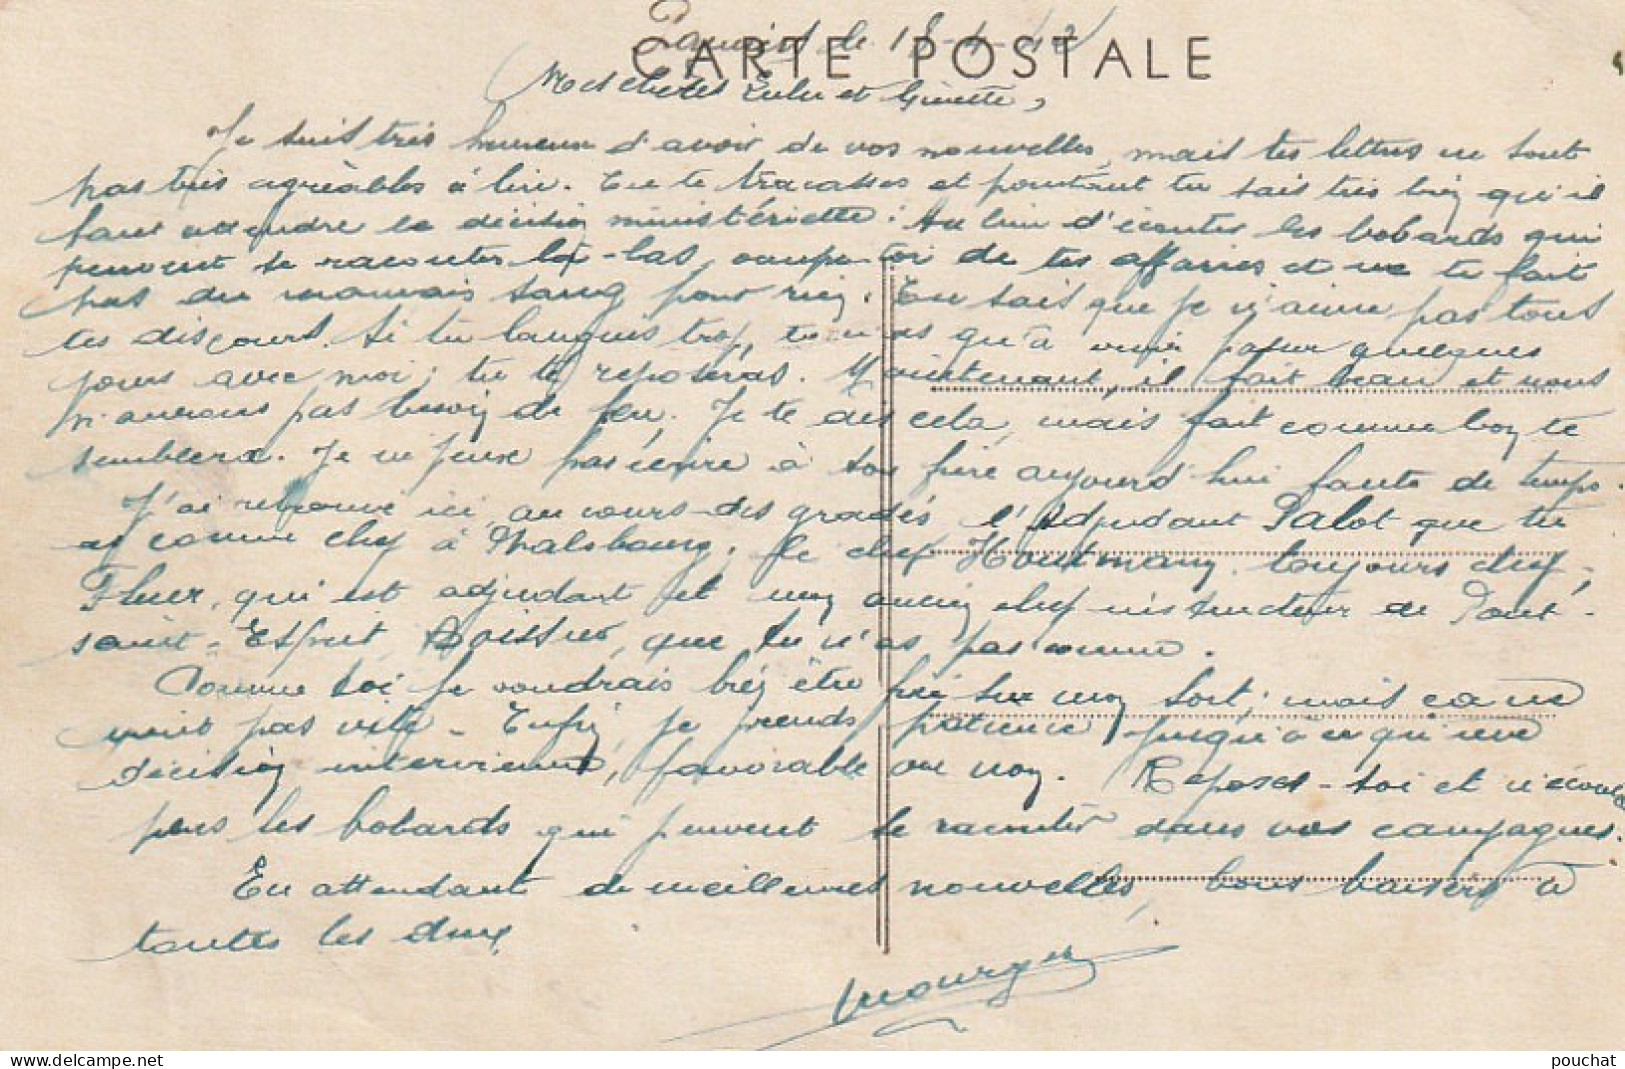 le 18-4-42
CARTE POSTALE
Mes chères Lulu et Ginette,
Je suis très heureux d'avoir de vos nouvelles, mais tes lettres ne sont
pas très agréables à lire. Tu te tracasses et pourtant tu sais très bien qu'il
faut attendre la décision ministérielle. Au lieu d'écouter les bobards qui
peuvent se raconter là-bas, occupe-toi de tes affaires et ne te fait
pas du mauvais sang pour rien. Tu sais que je n'aime pas tous
tes discours. Si tu languis trop, tu n'as qu'à venir passer quelques
jours avec moi; tu te reposeras. Maintenant, il fait beau et nous
n'aurons pas besoin de feu. Je te dis cela, mais fait comme bon te
semblera. Je ne peux pas écrire à ton père aujourd'hui faute de temps.
J'ai retrouvé ici, au cours des gradés, l'Adjudant Palot que tu
as connu chef à Phalsbourg, le chef Houtmann, toujours chef,
qui est adjudant et mon ancien chef instructeur de Pont-
saint-Esprit Boissier, que tu n'as pas connu.
Comme toi je voudrais bien être fixé sur mon sort; mais ça ne
vient pas vite. Enfin, je prends patience jusqu'à ce qu'une
décision intervienne, favorable ou non. Reposes-toi et n'écoute
pas les bobards qui peuvent se raconter dans vos campagnes.
En attendant de meilleures nouvelles, bons baisers à
toutes les deux
pouchat
delcampe.net